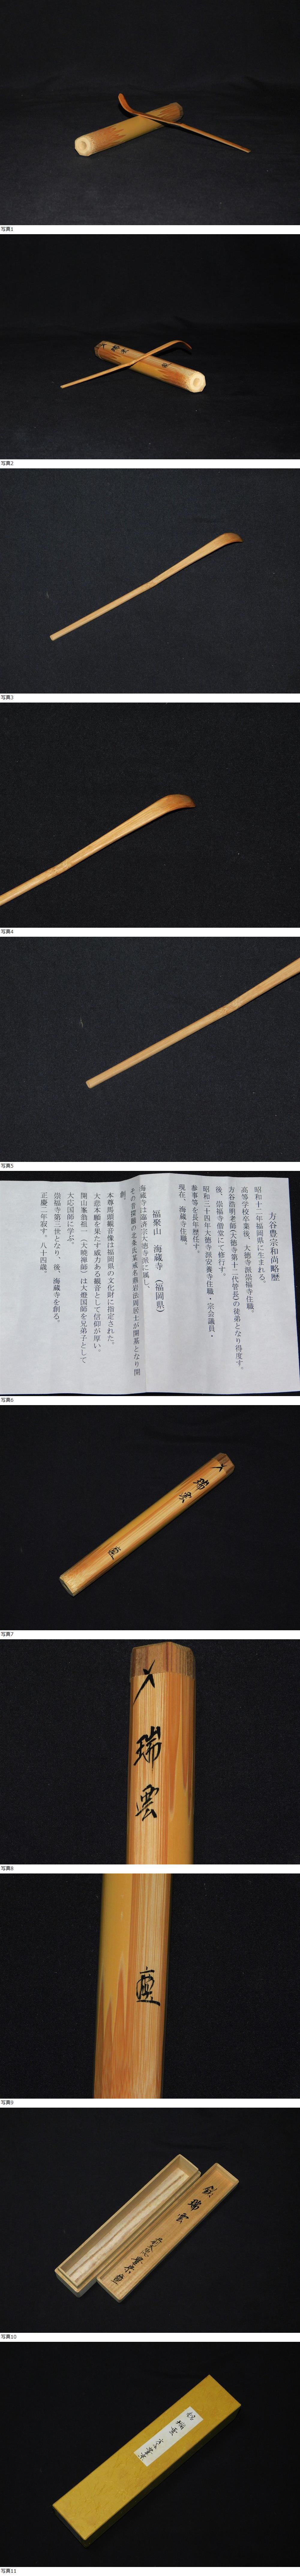 写真1
写真2
写真3
写真4
写真5
方谷豊宗和尚略歴
昭和十二年福岡県に生まれる。
高等学校卒業後、大徳寺派崇福寺住職、
方谷浩明老師(大徳寺第十二代管長)の徒弟となり得度す。
後、崇福寺僧堂にて修行す。
昭和三十四年大徳寺派安養寺住職・宗会議員・
参事等を長年歴任す。
現在、海蔵寺住職。
福聚山 海蔵寺 (福岡県)
海蔵寺は臨済宗大徳寺派に属し、
創。
本尊馬頭観音像は福岡県の文化財に指定された。
大悲本願を果たす威力ある観音として信仰が厚い。
大応国師に学ぶ。
崇福寺第三世となり、後、海蔵寺を創る。
正慶二年寂す。八十四歳。
写真6
瑞雲
写真7
瑞雲
写真8
写真9
銘 瑞雲
写真10
銘 瑞雲
写真11